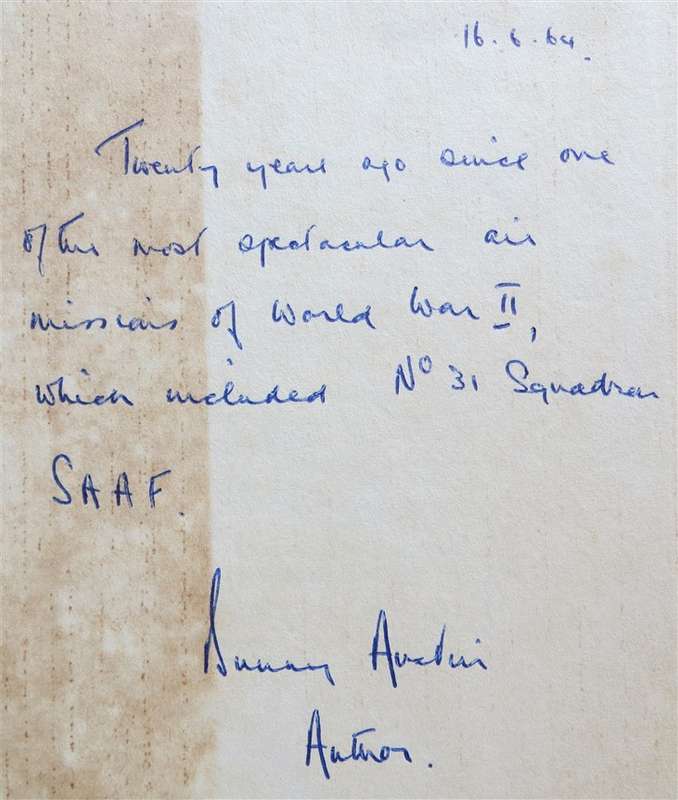 16.6.64.
Twenty years ago since one
of the most spectacular air
missions of World War II,
which included Nº 31 Squadron
SAAF.
Bunny Austin
Author.